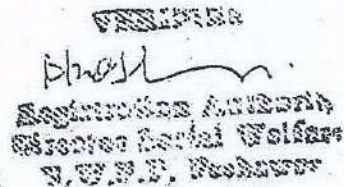 Registration Authority
Director Social Welfare
N.W.F.P. Peshawar